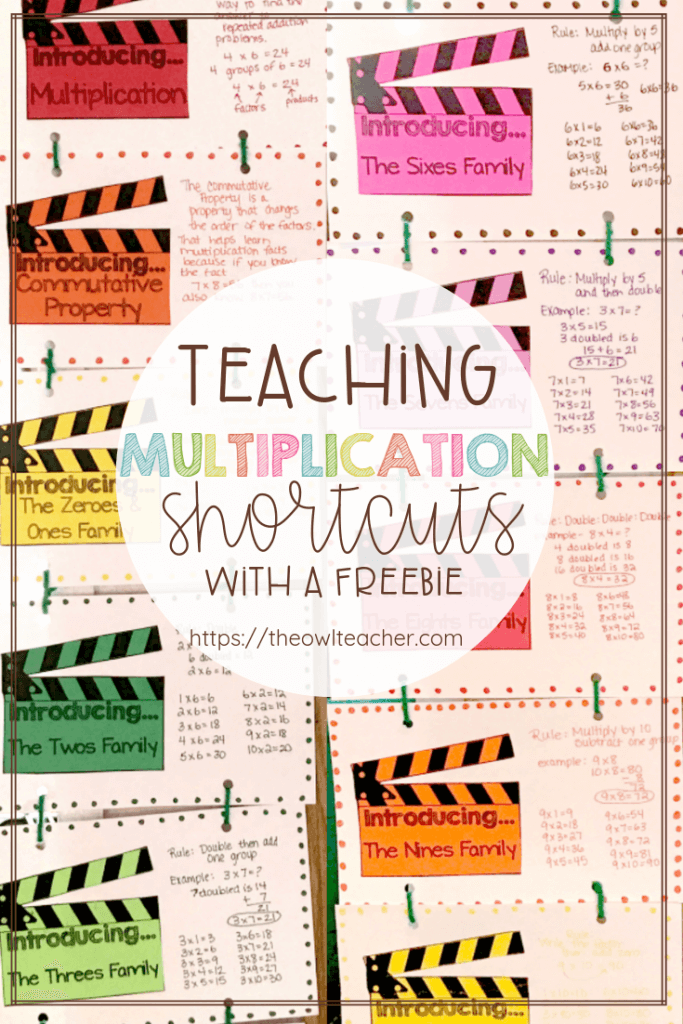 way to find the
repeated addition
problems.
4 x 6 = 24
4 groups of 6 = 24
4 x 6 = 24
factors
products
Introducing...
Multiplication
The Commutative
Property is a
property that changes
the order of the factors.
That helps learn
multiplication facts
because if you know
the fact
7 x 8 =
also
Introducing...
Commutative
Property
Introducing
The Zeroes &
Ones Family
2x6=12
1x6=6
2x6=12
3x6=18
4x6=24
5x6=30
6x2=12
7x2=14
8x2=16
9x2=18
10x2=20
Introducing...
The Twos Family
Rule: Double then add
one group
Example: 3x7=?
7 doubled is 14
+ 7
21
3x7=21
3x1=3
3x2=6
3x3=9
3x4=12
3x5=15
3x6=18
3x7=21
3x8=24
3x9=27
3x10=30
Introducing...
The Threes Family
Rule: Multiply by 5
add one group
Example: 6x6=?
5x6=30
+ 6
36
6x6=36
6x1=6
6x2=12
6x3=18
6x4=24
6x5=30
6x6=36
6x7=42
6x8=48
6x9=54
6x10=60
Introducing...
The Sixes Family
Rule: Multiply by 5
and then double
Example: 3x7=?
3x5=15
3 doubled is 6
15+6=21
3x7=21
7x1=7
7x2=14
7x3=21
7x4=28
7x5=35
7x6=42
7x7=49
7x8=56
7x9=63
7x10=70
Introducing...
The Sevens Family
TEACHING
MULTIPLICATION
shortcuts
WITH A FREEBIE
https://theowlteacher.com
Rule: Double: Double: Double
example- 8x4=?
4 doubled is 8
8 doubled is 16
16 doubled is 32
8x4=32
8x1=8
8x2=16
8x3=24
8x4=32
8x5=40
8x6=48
8x7=56
8x8=64
8x9=72
8x10=80
Introducing...
The Eights Family
Rule: Multiply by 10
subtract one group
example: 9x8
10x8=80
- 8
72
9x8=72
9x1=9
9x2=18
9x3=27
9x4=36
9x5=45
9x6=54
9x7=63
9x8=72
9x9=81
9x10=90
Introducing...
The Nines Family
Introducing...